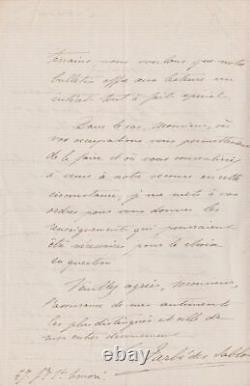 terrains, nous voulons que notre
bulletin offre aux lecteurs un
intérêt tout à fait spécial.
Dans le cas, Monsieur, où
vos occupations vous permettraient
de le faire et où vous consentiriez
à venir à notre secours en cette
circonstance, je me mets à vos
ordres pour vous donner les
renseignements qui pourraient
être nécessaires pour le choix
en question.
Veuillez agréer, Monsieur,
l'assurance de mes sentiments
les plus distingués et celle de
mon entier dévouement
Barbé des Sablons
67 Fg St honoré